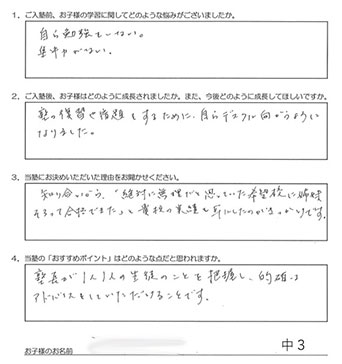 1、ご入塾前、お子様の学習に関してどのような悩みがございましたか。
自ら勉強をしない。
集中力がない。
2、ご入塾後、お子様はどのように成長されましたか。また、今後どのように成長してほしいですか。
塾の復習や宿題をするために、自らデスクに向かうように
なりました。
3、当塾にお決めいただいた理由をお聞かせください。
知り合いから、「絶対に無理だと思っていた希望校に姉妹
そろって合格できた」と貴校の実績を耳にしたのがきっかけです。
4、当塾の「おすすめポイント」はどのような点だと思われますか。
塾長が1人1人の生徒のことを把握し、的確な
アドバイスをしていただけることです。
お子様のお名前
中3